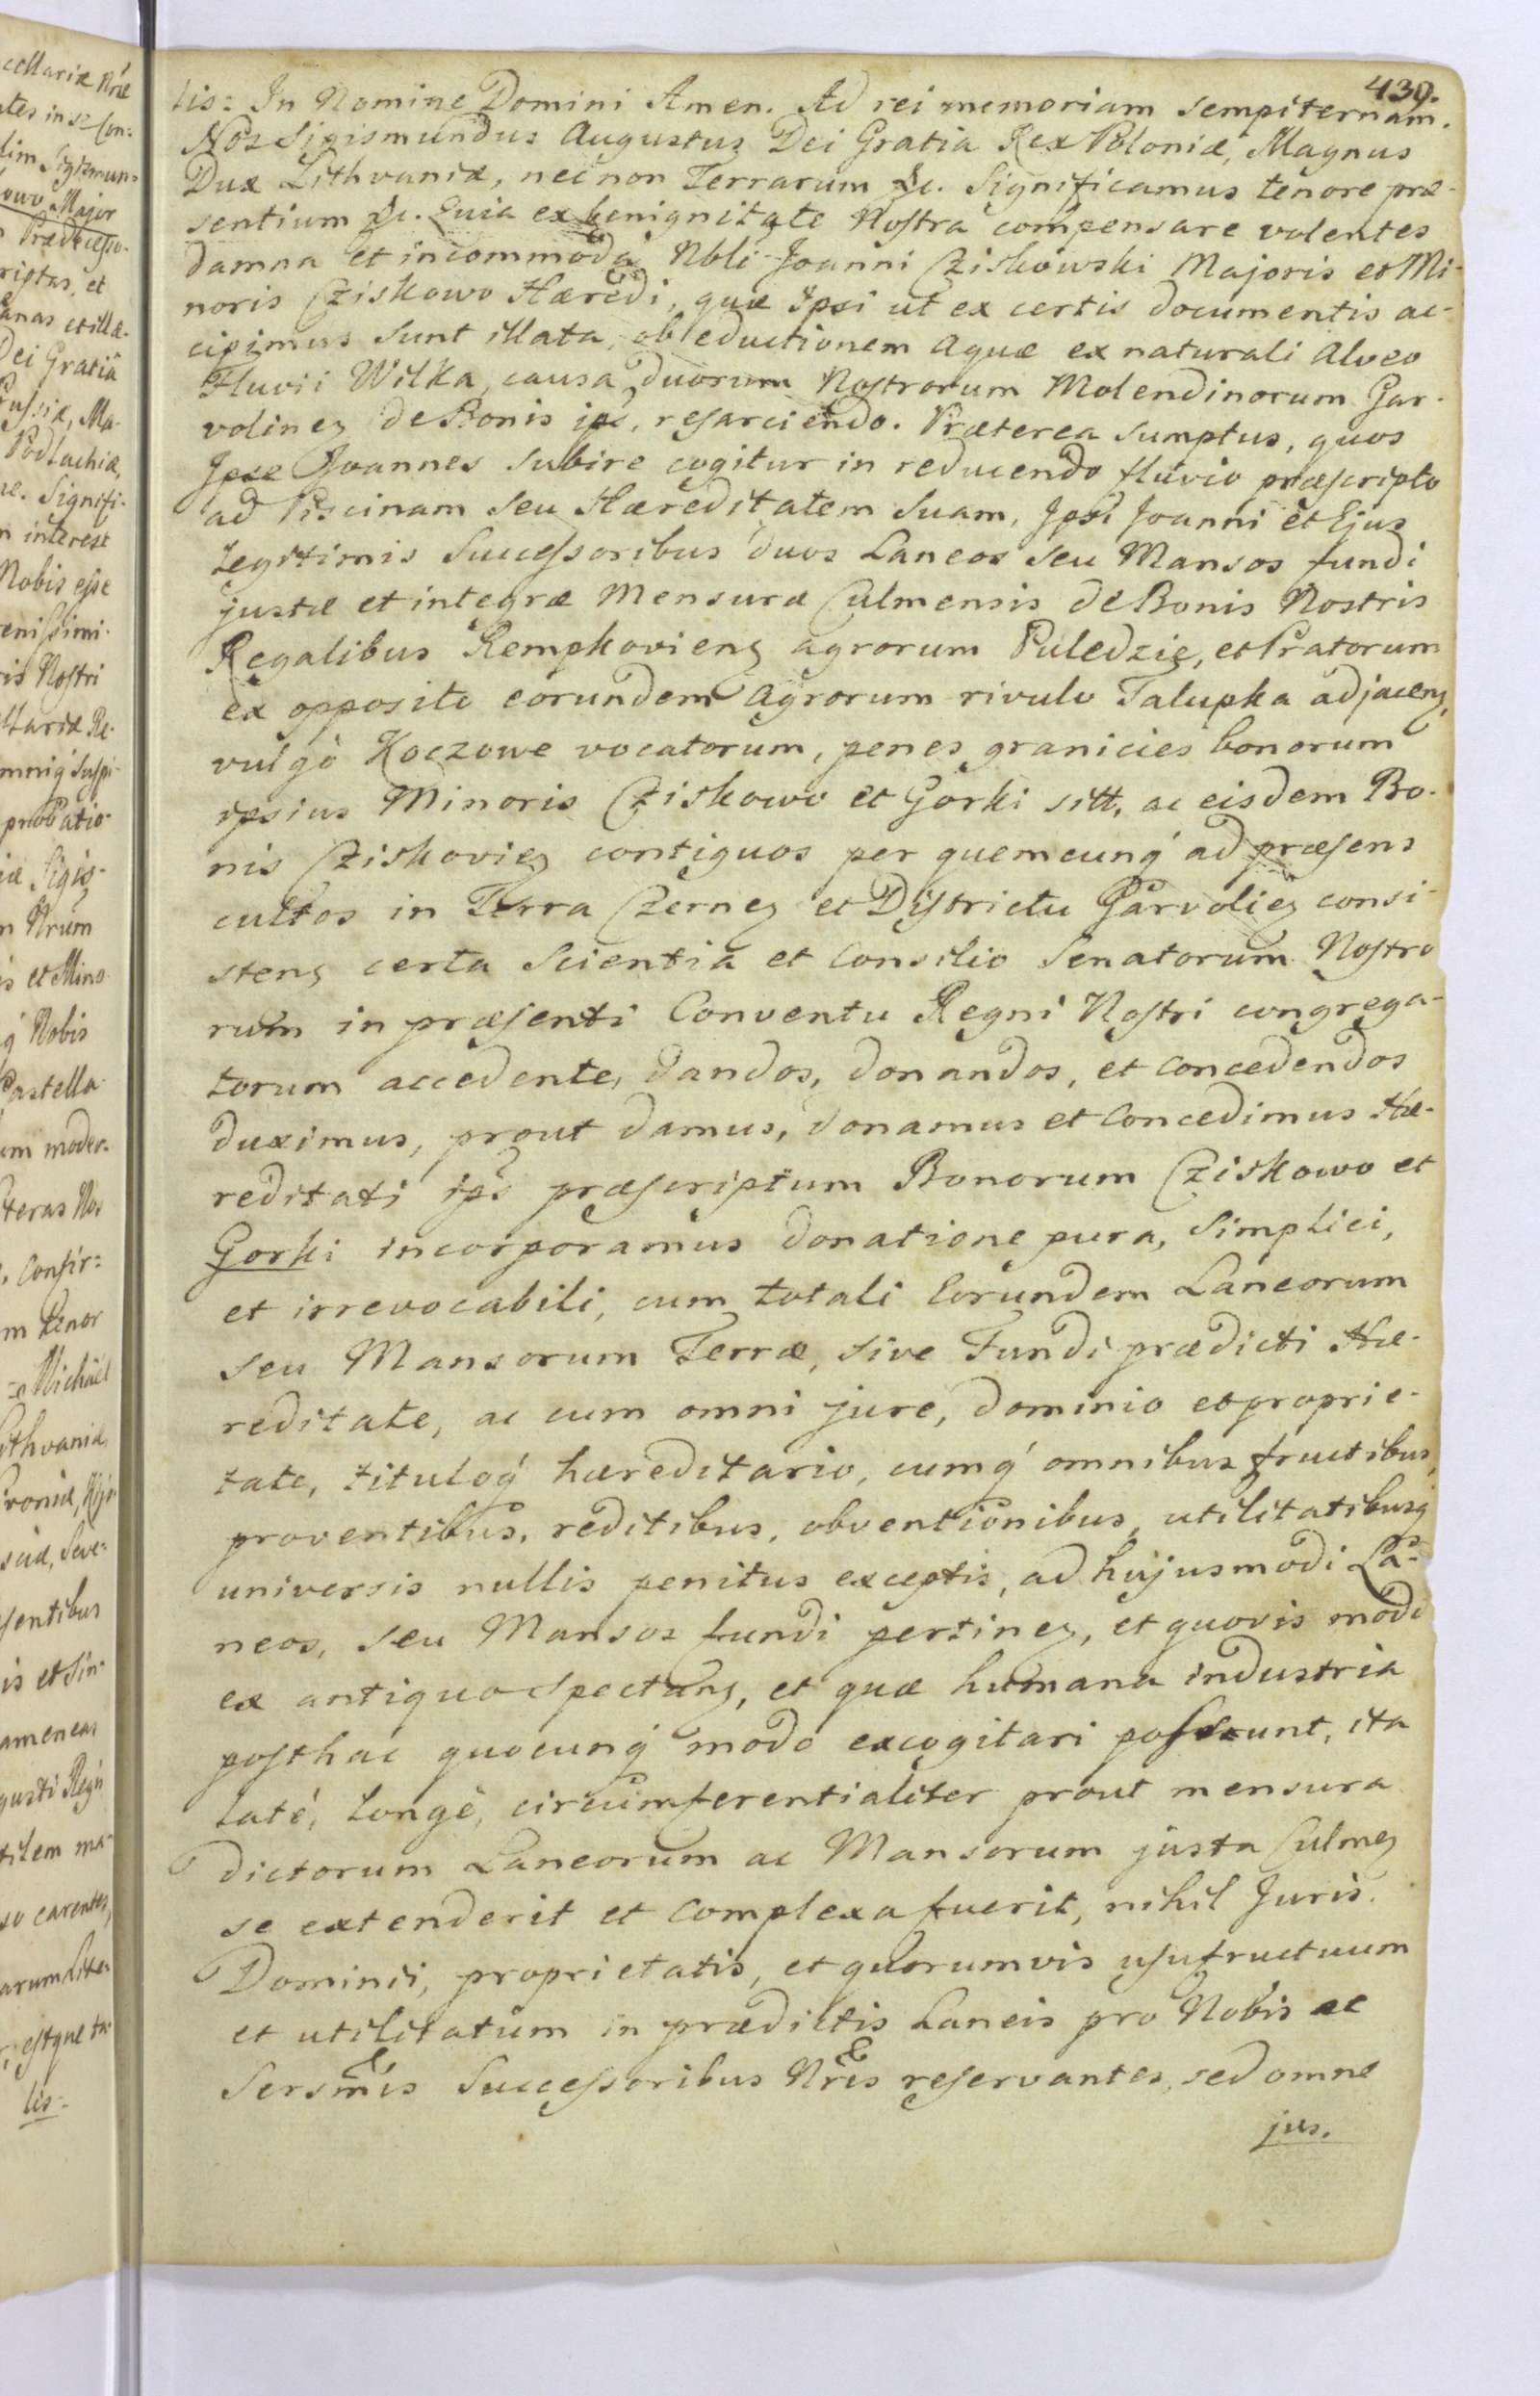 cellariæ Nræ
ates in se Con:
lim Sigismun:
kowo Major
Prædecesso-
riptas, et
anas et illæ-
Dei Gratiâ
Russiæ, Ma-
Podlachiæ,
Signifi-
interest
Nobis esse
renissimi
ris Nostri
llariæ Re-
omniq́ suspi-
probatio-
iæ Sigis-
m Nrum
is et Mino-
q́ Nobis
Castella-
um moder-
teras Nos
Confir:
m tenor
Michaël
Lithvaniæ,
voniæ, Kijo-
sciæ, Seve-
sentibus
is et Sin-
amen eas
gusti Regis
tilem ma-
so carentes,
arum Lite-
estque ta-
lis:
439.
lis: In Nomine Domini Amen. Ad rei memoriam sempiternam.
Nos Sigismundus Augustus Dei Gratia Rex Poloniæ, Magnus
Dux Lithvaniæ, nec non Terrarum &c. Significamus tenore præ-
sentium &c. Quia ex benignitate Nostra compensare volentes
damna et incommoda Nbli Joanni Cziskowski Majoris et Mi-
noris Cziskowo Hæredi, quæ Ipsi ut ex certis documentis ac-
cipimus sunt illata, ob eductionem Aquæ ex naturali Alveo
Fluvii Wilka, causa duorum Nostrorum Molendinorum Gar-
volineȝ de Bonis ips, resarciendo. Præterea sumptus, quos
Ipse Joannes subire cogitur in reducendo fluvio præscripto
ad Piscinam seu Hæreditatem Suam, Ipsi Joanni et Ejus
Legitimis Successoribus duos Laneos seu Mansos fundi
justæ et integræ Mensuræ Culmensis de Bonis Nostris
Regalibus Rempkovienȝ agrorum Puledzie, et Pratorum
ex opposito eorundem Agrorum rivulo Talupka adjacenȝ,
vulgò Koczowe vocatorum, penes granicies bonorum
ipsius Minoris Cziskowo et Gorki sitt, ac eisdem Bo-
nis Cziskovieȝ contiguos per quemcunq́ ad præsens
cultos in Terra Czerneȝ et Districtu Garvolieȝ consi-
stenȝ certa Scientia et Consilio Senatorum Nostro
rum in præsenti Conventu Regni Nostri congrega-
torum accedente, dandos, donandos, et concedendos
duximus, prout damus, donamus et Concedimus Hæ-
reditati ips præscriptum Bonorum Cziskowo et
Gorki incorporamus donatione pura, simplici,
et irrevocabili, cum totali Eorundem Laneorum
seu Mansorum Terræ, sive Fundi prædicti Hæ-
reditate, ac cum omni jure, dominio et proprie-
tate, tituloq́ hæreditario, cumq́ omnibus fructibus,
proventibus, reditibus, obventionibus, utilitatibusq́
universis nullis penitus exceptis, ad hujusmodi La-
neos, seu Mansos fundi pertineȝ, et quovis modo
ex antiquo spectanȝ, et quæ humana industria
posthac quocunq́ modo excogitari possunt, ita
latè, longè, circumferentialiter prout mensura
dictorum Laneorum ac Mansorum justa Culmeȝ
se extenderit et complexa fuerit, nihil Juris
Dominii, proprietatis, et quorumvis usufructuum
et utilitatum in prædictis Laneis pro Nobis ac
Sersmis Successoribus Nris reservantes, sed omne
jus.